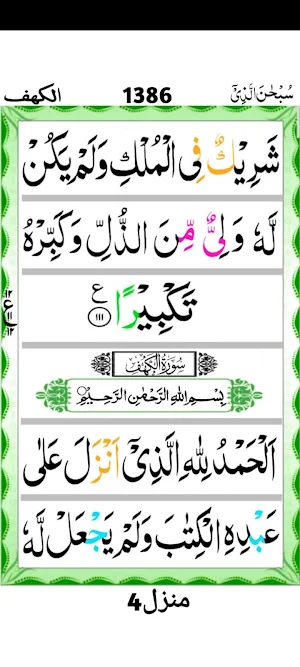 الكهف 1386 سُبْحٰنَ الَّذِیْۤ
شَرِیْكٌ فِی الْمُلْكِ وَلَمْ یَكُنْ
لَّهٗ وَلِیٌّ مِّنَ الذُّلِّ وَكَبِّرْهُ
تَكْبِیْرًا ع ١١١
سُوْرَةُ الْكَهْفِ
بِسْمِ اللهِ الرَّحْمٰنِ الرَّحِیْمِ
اَلْحَمْدُ لِلّٰهِ الَّذِیْۤ اَنْزَلَ عَلٰی
عَبْدِهِ الْكِتٰبَ وَلَمْ یَجْعَلْ لَّهٗ
منزل4